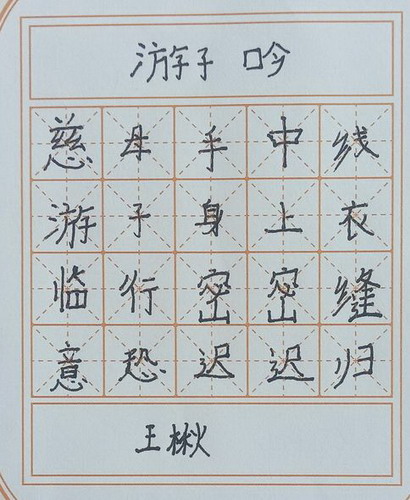 游子吟
慈母手中线
游子身上衣
临行密密缝
意恐迟迟归
王楸